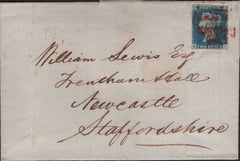 William Lewis Esq
Trentham Hall
Newcastle
Staffordshire
TWO PENCE